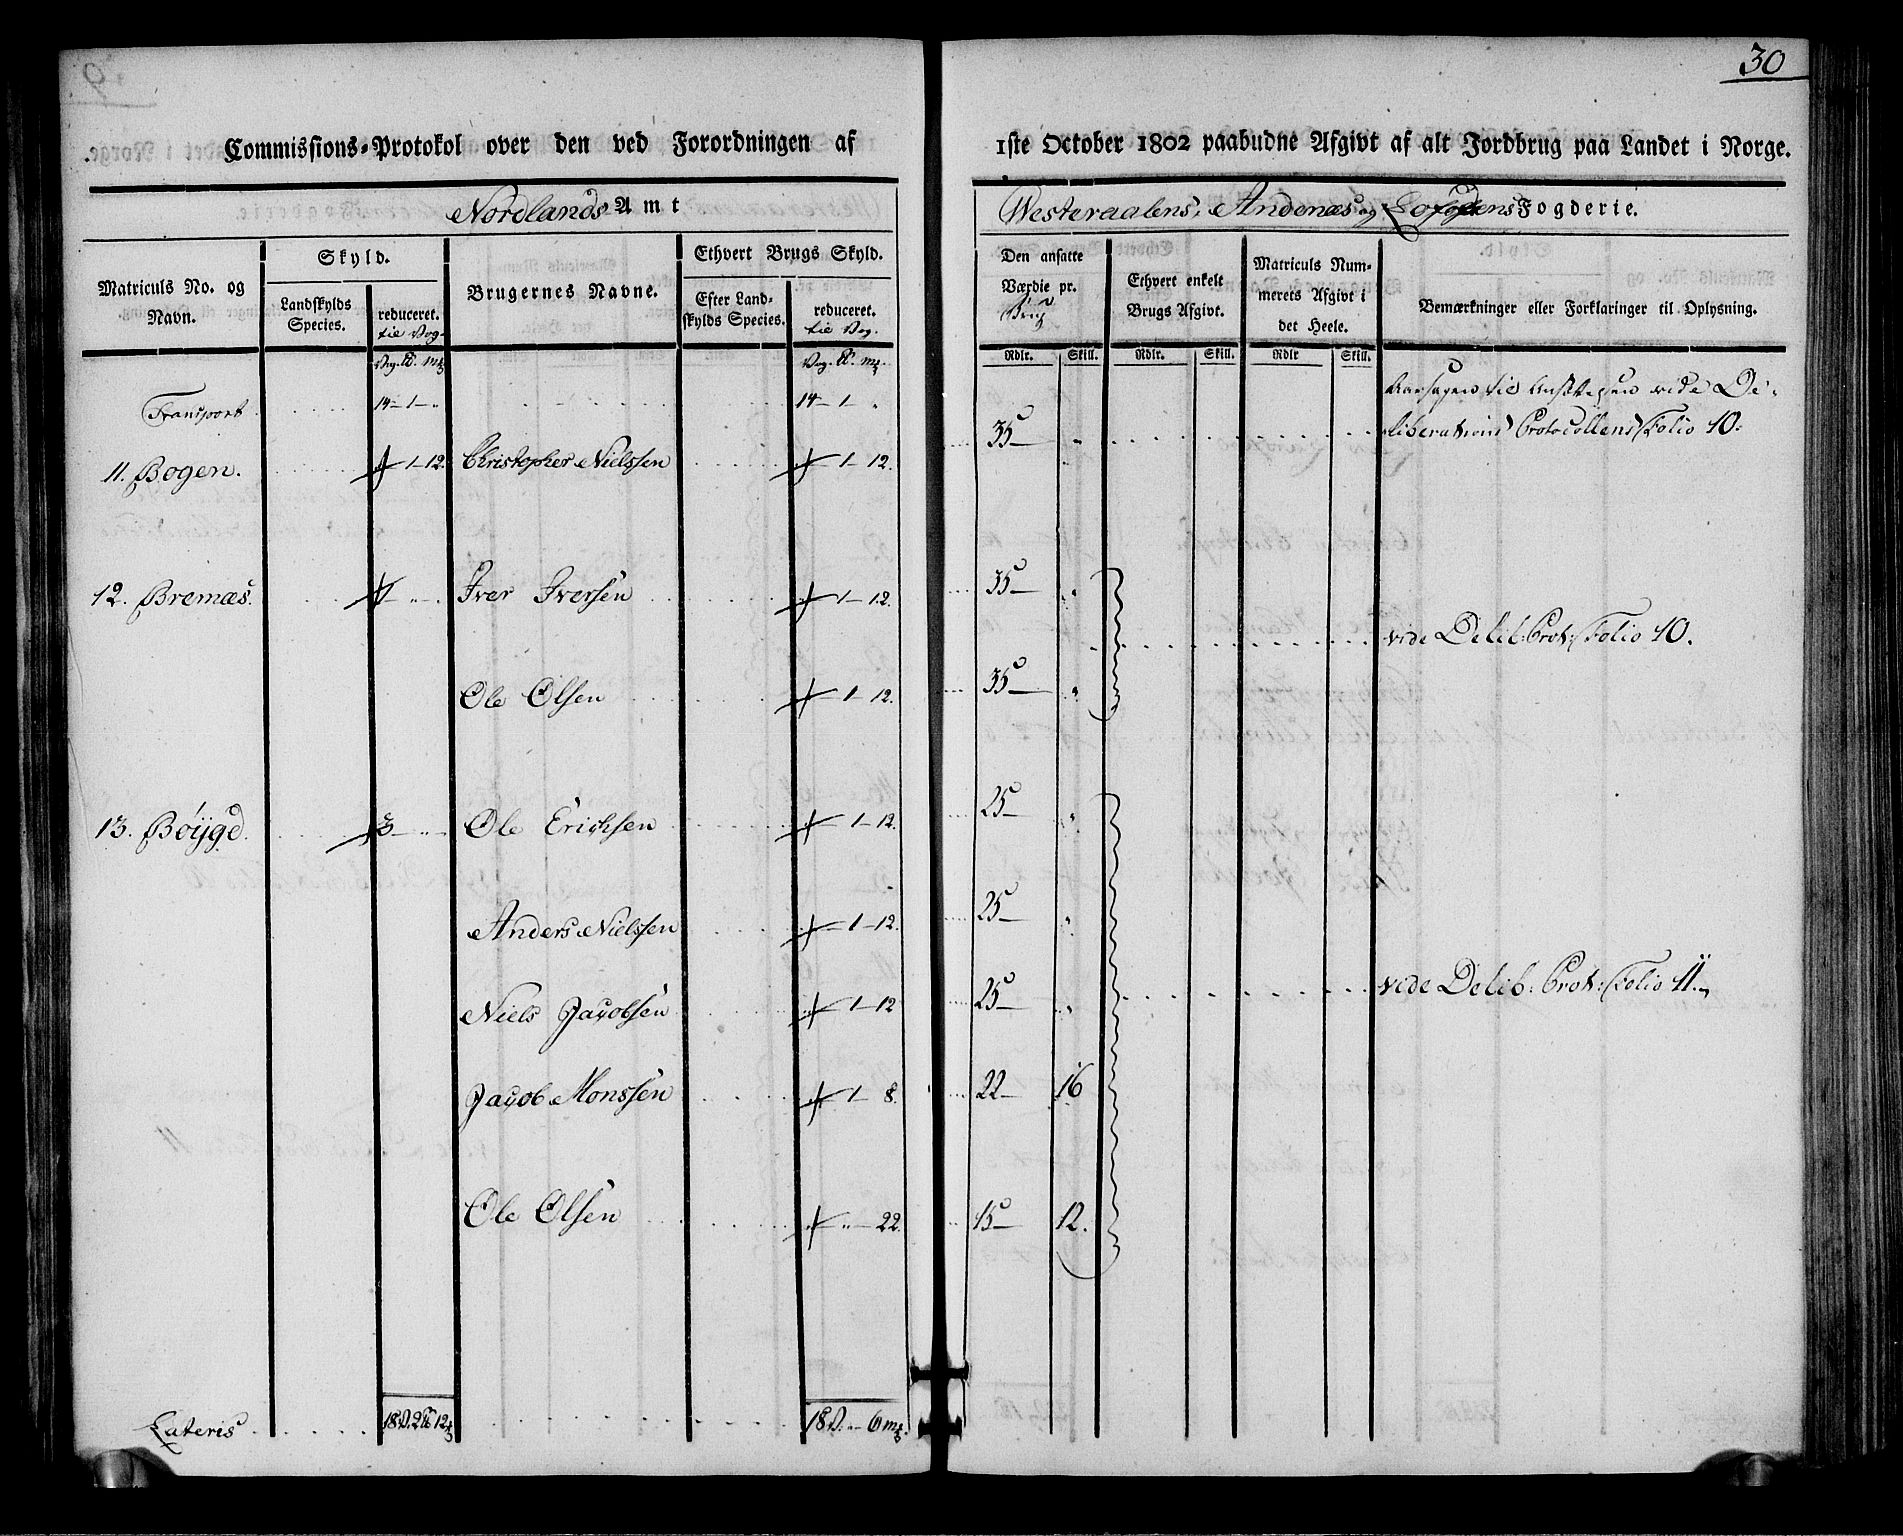 30
Commissions-Protokol over den ved Forordningen af 1ste October 1802 paabudne Afgivt af alt Jordbrug paa Landet i Norge.
Nordlands Amt
Westeraalens, Andenæs og Lofodens Fogderie.
Matriculs No. og Navn.
Skyld.
Landskylds Species.
reduceret. til Vog.
Brugernes Navne.
Ethvert Brugs Skyld.
Efter Landskylds Species.
reduceret. til Vog.
Den ansatte Værdie pr. Brug
Ethvert enkelt Brugs Afgivt.
Matriculs Nummerets Afgivt i det Heele.
Bemærkninger eller Forklaringer til Oplysning.
Rdlr. Skill. Rdlr. Skill. Rdlr Skill.
Transport 14 - 1 - „ 14 - 1 „
11. Bogen. 1 - 12. Christopher Nielssen 1 - 12. 35 - „ Aarsagen til Ansættelsen vide De-
liberations Protocollens Folio 10.
12. Bremæs. 1 „ - „ Iver Iversen 1 - 12. 35 - „
vide Delib: Prot: Folio 10.
Ole Olsen 1 - 12. 35 - „
13. Bøygd. 3 - „ - „ Ole Erichsen 1 - 12. 25 - „
Anders Nielssen 1 - 12. 25 - „
Niels Jacobsen 1 - 12 25 - „ vide Delib: Prot: Folio 11.
Jacob Monssen 1 - 8. 22 - 16
Ole Olsen „ - 22. 15 - 12.
Lateris 18 V. 2 12 18 V. „ 6 mk.